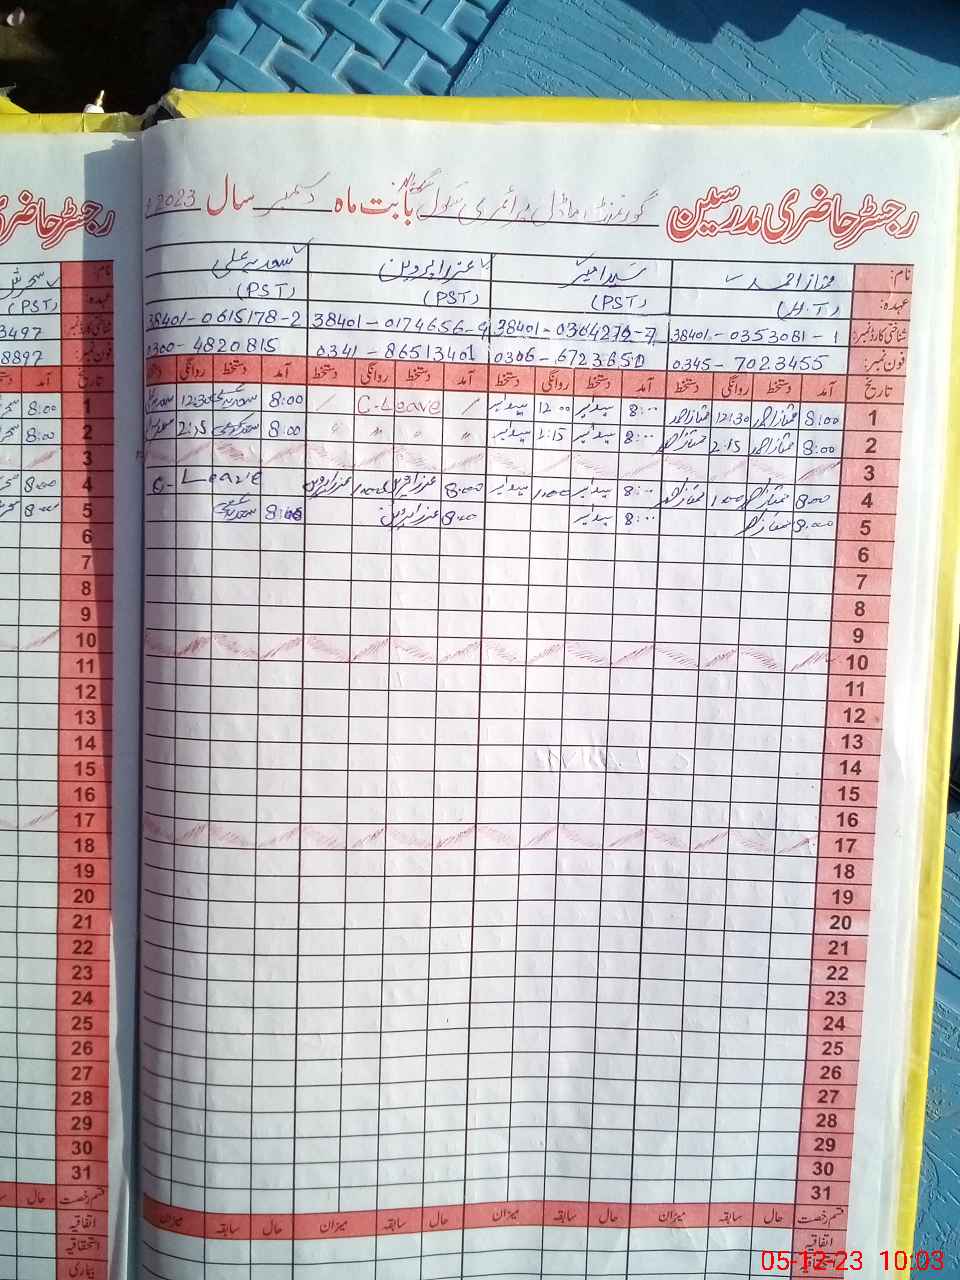 رجسٹر حاضری مدرسین گورنمنٹ ماڈل پرائمری سکول بابت ماہ دسمبر سال 2023
نام: ممتاز احمد سید امیر عذرا پروین سعدیہ علی
عہدہ: (H.T) (PST) (PST) (PST)
شناختی کارڈ نمبر: 38401-0353081-1 38401-0364279-7 38401-0174656-9 38401-0615178-2
فون نمبر: 0345-7023455 0306-6723650 0341-8651340 0300-4820815
تاریخ آمد دستخط روانگی دستخط آمد دستخط روانگی دستخط آمد دستخط روانگی دستخط آمد دستخط روانگی
1 8:00 ممتاز احمد 12:30 ممتاز احمد 8:00 12:00 C-Leave 8:00 12:30
2 8:00 ممتاز احمد 2:15 ممتاز احمد 8:00 1:15 " " " " 8:00 2:15
3
4 8:00 ممتاز احمد 1:00 ممتاز احمد 8:00 1:00 8:00 عذرا پروین 1:00 عذرا پروین C-Leave
5 8:00 ممتاز احمد 8:00 8:00 عذرا پروین 8:00
6
7
8
9
10
11
12
13
14
15
16
17
18
19
20
21
22
23
24
25
26
27
28
29
30
31
قسم رخصت حال سابقہ میزان حال سابقہ میزان حال سابقہ میزان حال سابقہ میزان
اتفاقیہ
استحقاقیہ
رجسٹر حاضری
(PST)
3497
8897
تاریخ آمد
1 8:00
2 8:00
3
4 8:00
5 8:00
6
7
8
9
10
11
12
13
14
15
16
17
18
19
20
21
22
23
24
25
26
27
28
29
30
31
قسم رخصت حال
اتفاقیہ
استحقاقیہ
بیماری
05-12-23 10:03